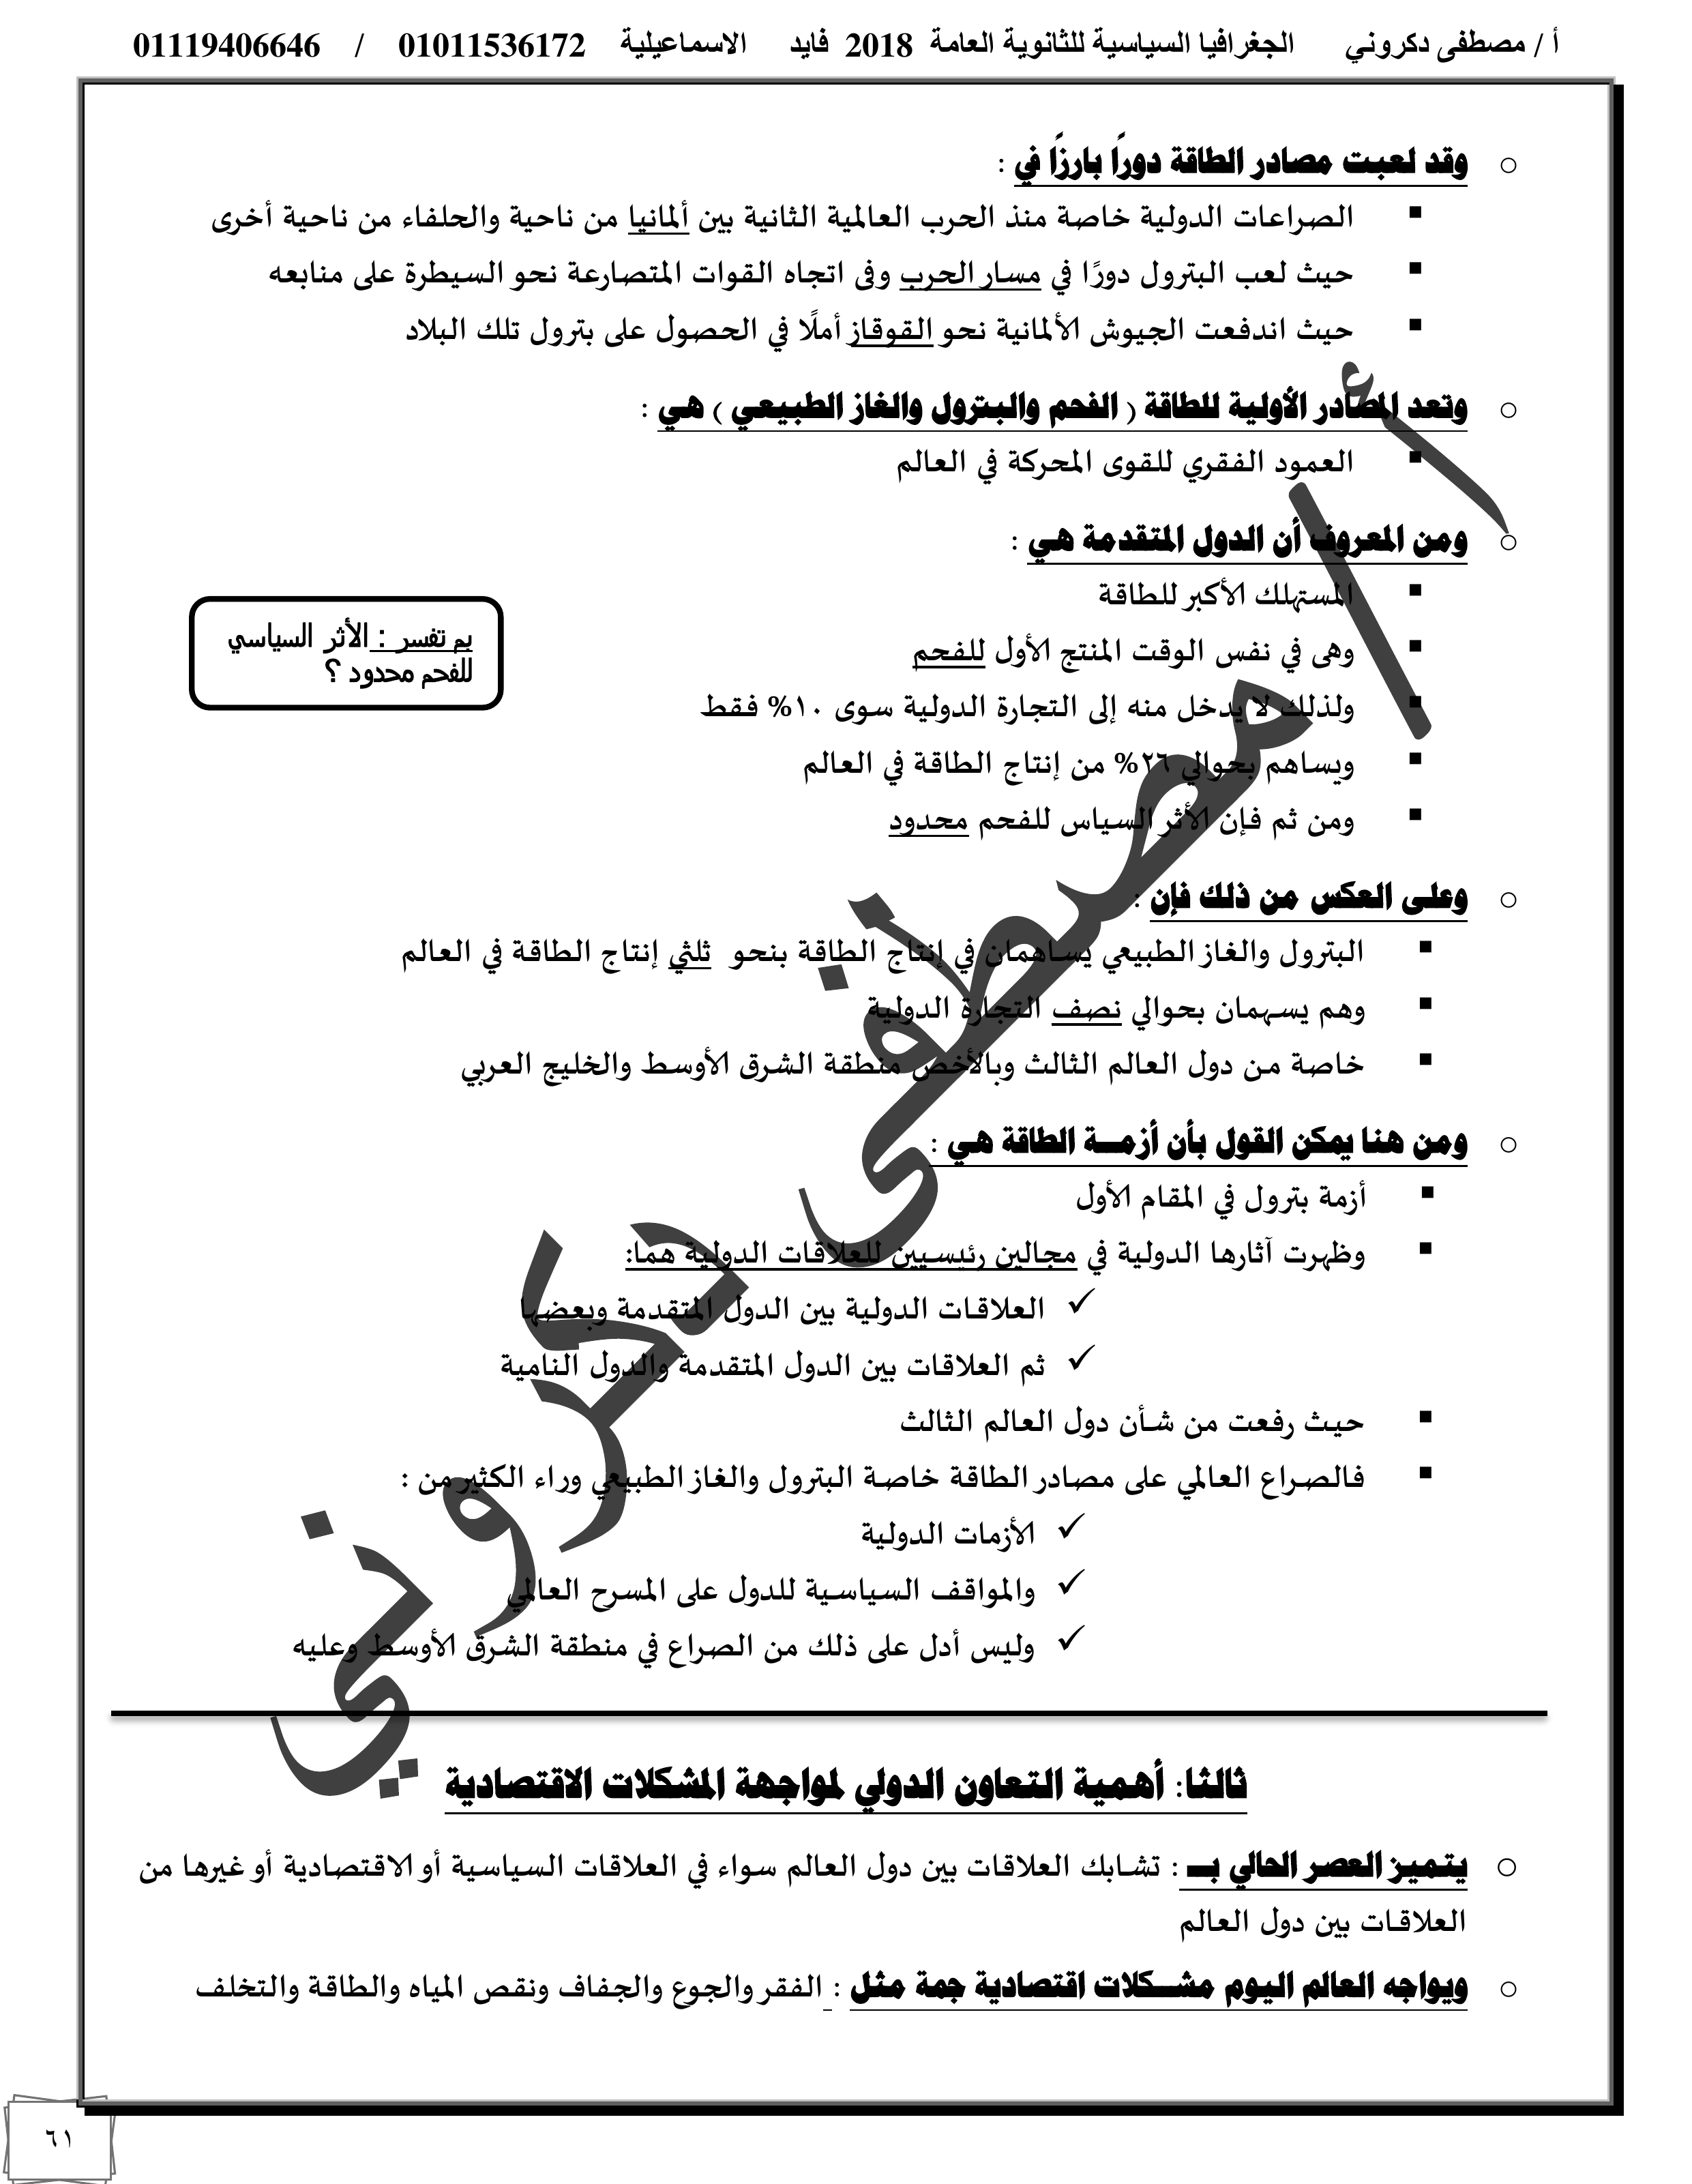 أ / مصطفى دكروني الجغرافيا السياسية للثانوية العامة 2018 فايد الاسماعيلية 01011536172 / 01119406646
وقد لعبت مصادر الطاقة دورًا بارزًا في :
الصراعات الدولية خاصة منذ الحرب العالمية الثانية بين ألمانيا من ناحية والحلفاء من ناحية أخرى
حيث لعب البترول دورًا في مسار الحرب وفى اتجاه القوات المتصارعة نحو السيطرة على منابعه
حيث اندفعت الجيوش الألمانية نحو القوقاز أملًا في الحصول على بترول تلك البلاد
وتعد المصادر الأولية للطاقة ( الفحم والبترول والغاز الطبيعي ) هي :
العمود الفقري للقوى المحركة في العالم
ومن المعروف أن الدول المتقدمة هي :
المستهلك الأكبر للطاقة
بم تفسر : الأثر السياسي
للفحم محدود ؟
وهى في نفس الوقت المنتج الأول للفحم
ولذلك لا يدخل منه إلى التجارة الدولية سوى ١٠% فقط
ويساهم بحوالي ٢٦% من إنتاج الطاقة في العالم
ومن ثم فإن الأثر السياس للفحم محدود
وعلى العكس من ذلك فإن :
البترول والغاز الطبيعي يساهمان في إنتاج الطاقة بنحو ثلثي إنتاج الطاقة في العالم
وهم يسهمان بحوالي نصف التجارة الدولية
خاصة من دول العالم الثالث وبالأخص منطقة الشرق الأوسط والخليج العربي
ومن هنا يمكن القول بأن أزمـة الطاقة هي :
أزمة بترول في المقام الأول
وظهرت آثارها الدولية في مجالين رئيسيين للعلاقات الدولية هما:
العلاقات الدولية بين الدول المتقدمة وبعضها
ثم العلاقات بين الدول المتقدمة والدول النامية
حيث رفعت من شأن دول العالم الثالث
فالصراع العالمي على مصادر الطاقة خاصة البترول والغاز الطبيعي وراء الكثير من :
الأزمات الدولية
والمواقف السياسية للدول على المسرح العالمي
وليس أدل على ذلك من الصراع في منطقة الشرق الأوسط وعليه
أ / مصطفى دكروني
ثالثا: أهمية التعاون الدولي لمواجهة المشكلات الاقتصادية
يتميز العصر الحالي بـ : تشابك العلاقات بين دول العالم سواء في العلاقات السياسية أو الاقتصادية أو غيرها من
العلاقات بين دول العالم
ويواجه العالم اليوم مشـكلات اقتصادية جمة مثل : الفقر والجوع والجفاف ونقص المياه والطاقة والتخلف
٦١